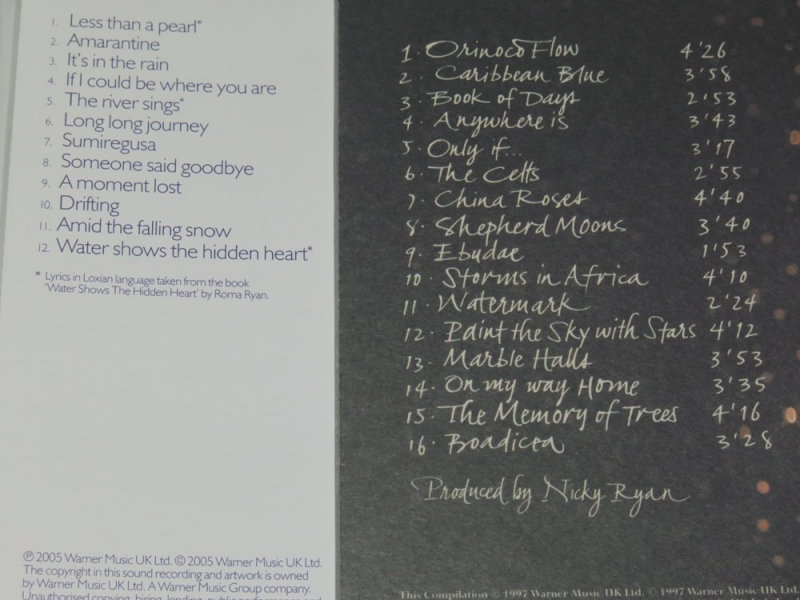 1. Less than a pearl*
2. Amarantine
3. It's in the rain
4. If I could be where you are
5. The river sings*
6. Long long journey
7. Sumiregusa
8. Someone said goodbye
9. A moment lost
10. Drifting
11. Amid the falling snow
12. Water shows the hidden heart*
* Lyrics in Loxian language taken from the book
'Water Shows The Hidden Heart' by Roma Ryan.
℗ 2005 Warner Music UK Ltd. © 2005 Warner Music UK Ltd.
The copyright in this sound recording and artwork is owned
by Warner Music UK Ltd. A Warner Music Group company.
Unauthorised copying, hiring, lending, public performance and
1. Orinoco Flow 4'26
2. Caribbean Blue 3'58
3. Book of Days 2'53
4. Anywhere is 3'43
5. Only if... 3'17
6. The Celts 2'55
7. China Roses 4'40
8. Shepherd Moons 3'40
9. Ebudae 1'53
10. Storms in Africa 4'10
11. Watermark 2'24
12. Paint the Sky with Stars 4'12
13. Marble Halls 3'53
14. On my way Home 3'35
15. The Memory of Trees 4'16
16. Boadicea 3'28
Produced by Nicky Ryan
This Compilation © 1997 Warner Music UK Ltd. © 1997 Warner Music UK Ltd.